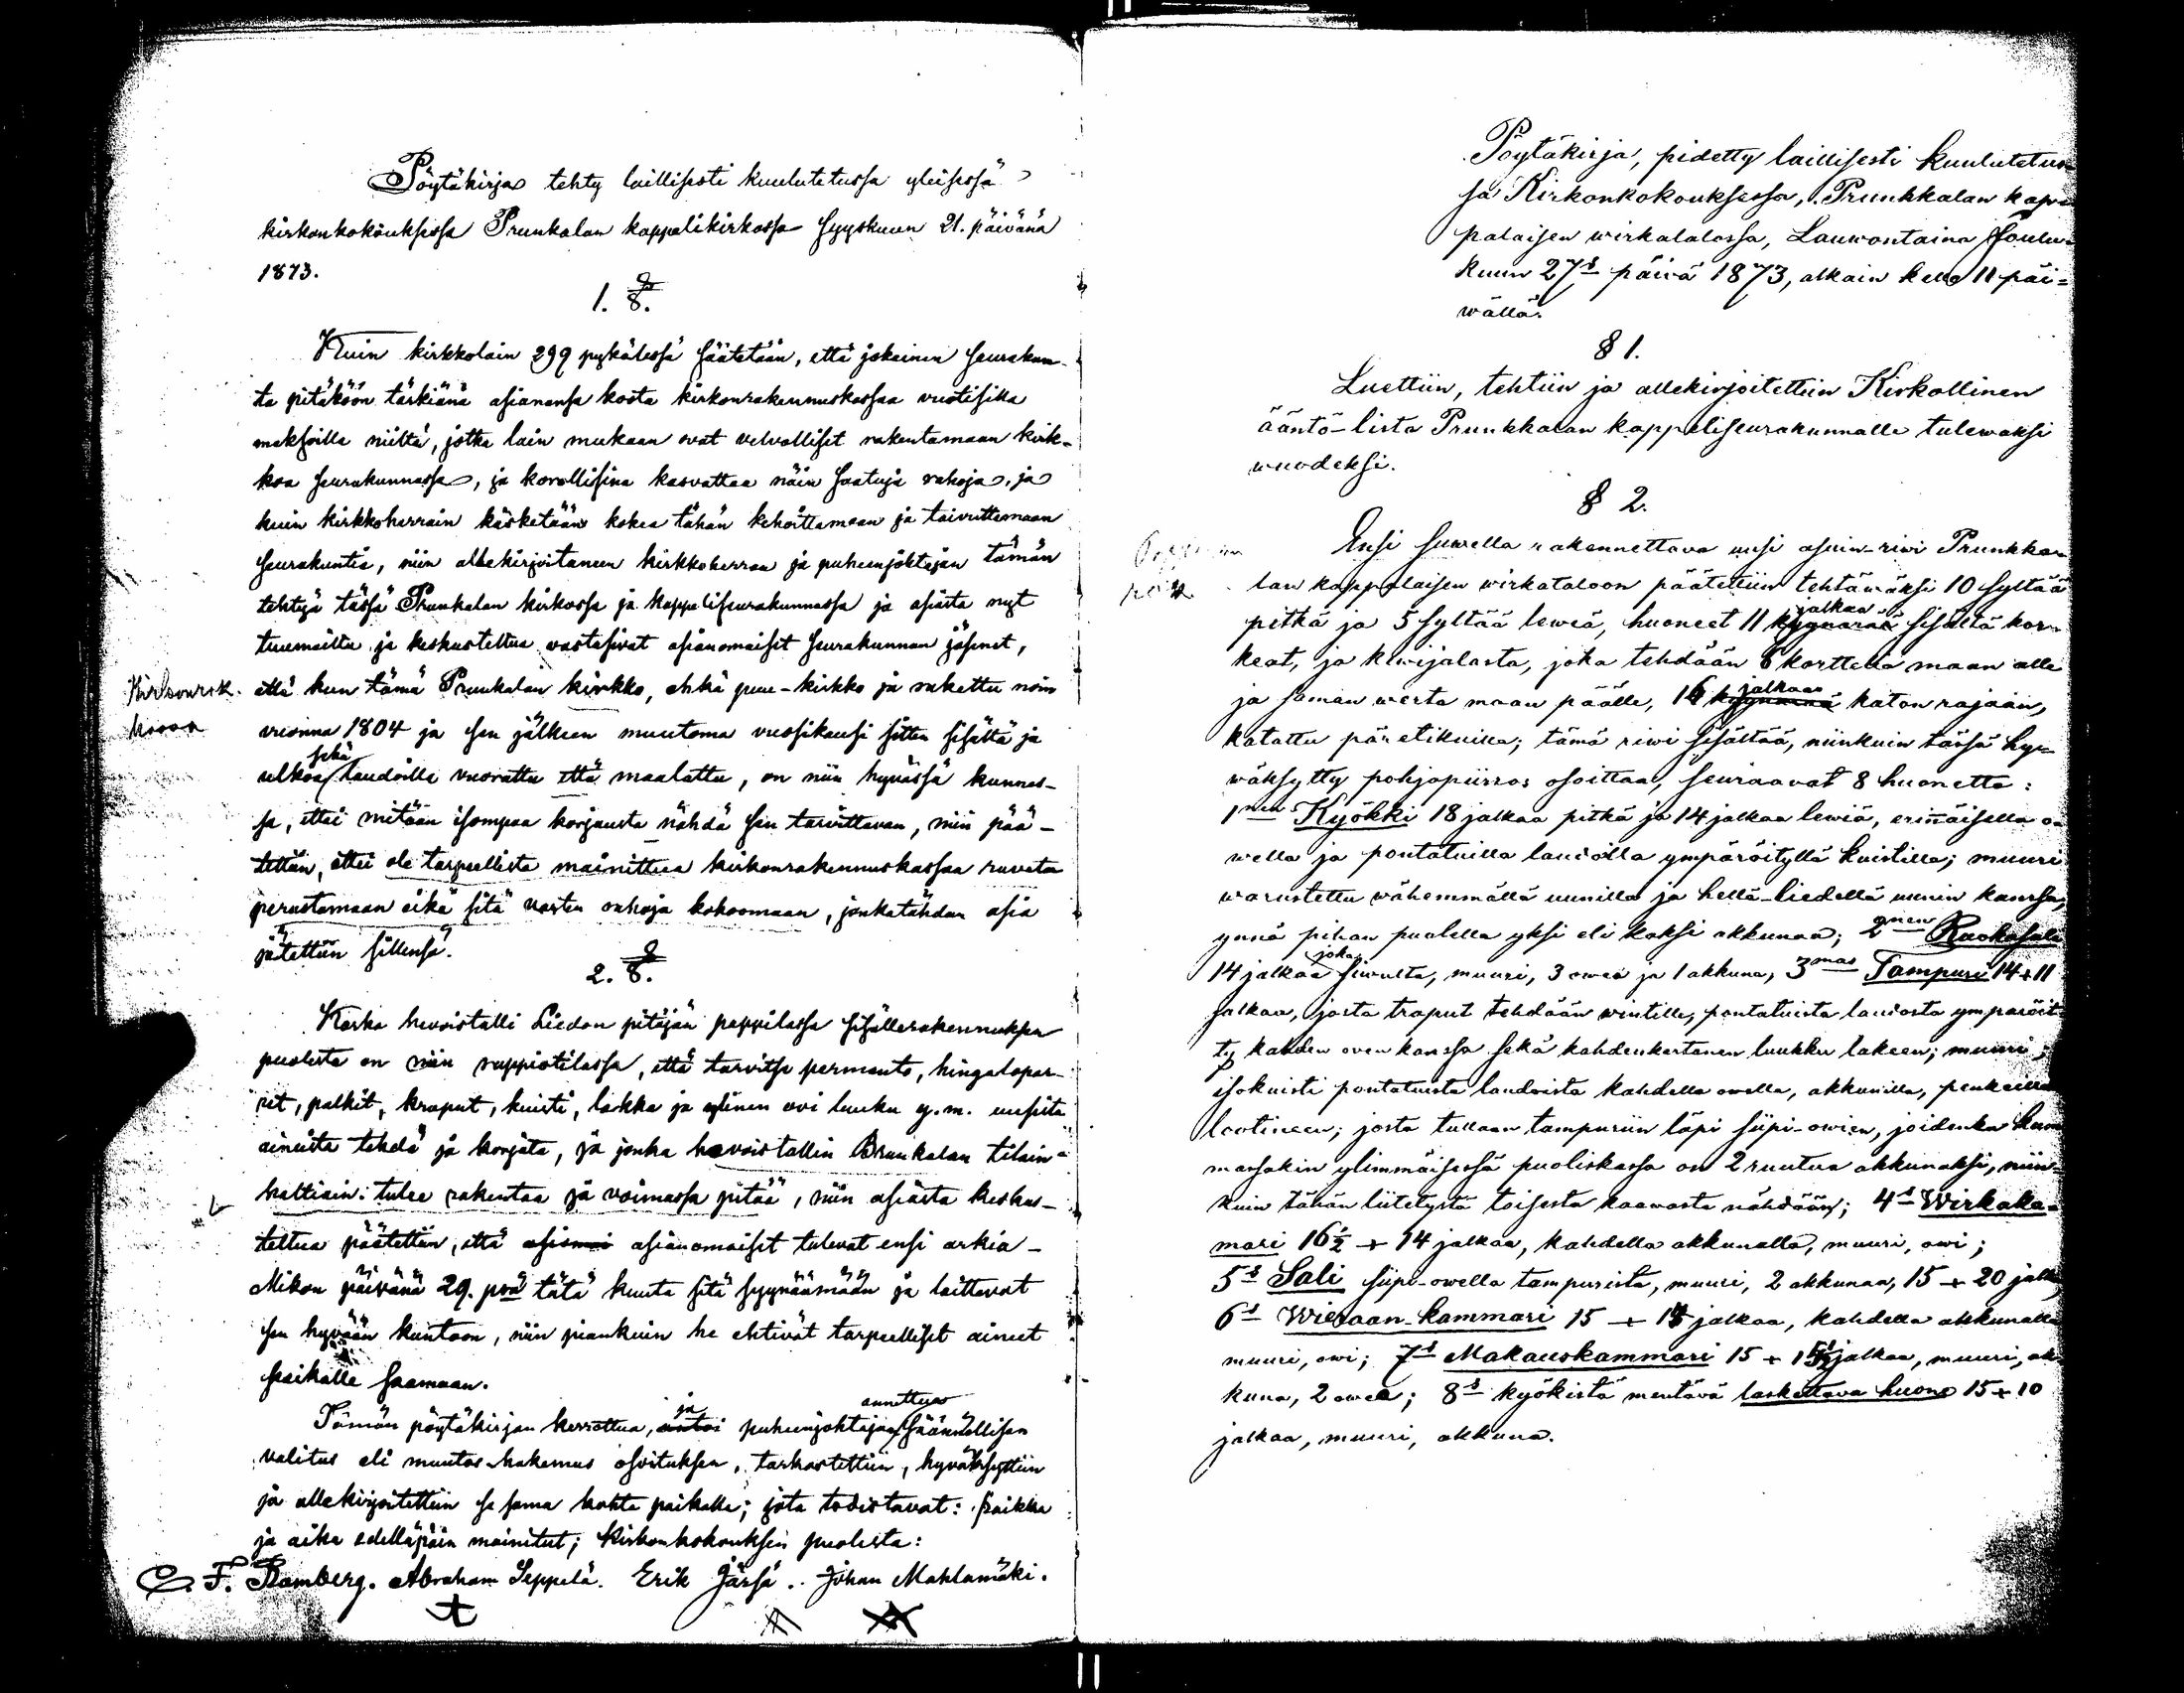 Pöytäkirja tehty laillisesti kuulutetussa yleisessä
kirkonkokouksessa Prunkalan kappelikirkossa Syyskuun 21. päivänä
1873.
1. §.
Kuin kirkkolain 299 pykälässä säätetään, että jokainen seurakun-
ta pitäköön tärkiänä asianansa koota kirkonrakennuskassaa vuotisilla
maksoilla niiltä, jotka lain mukaan ovat velvolliset rakentamaan kirk-
koa seurakunnassa, ja korollisina kasvattaa näin saatuja rahoja, ja
kuin kirkkoherrain käsketään kokea tähän kehoittamaan ja taivuttamaan
seurakuntia, niin allekirjoitaneen kirkkoherran ja puheenjohtajan tämän
tehtyä tässä Prunkalan kirkossa ja kappeliseurakunnassa ja asiasta nyt
tuumailtu ja keskusteltua vastasivat asianomaiset seurakunnan jäsenet,
Kirkonrak. että kun tämä Prunkalan kirkko, ehkä puu-kirkko ja rakettu noin
kassa vuonna 1804 ja sen jälkeen muutoma vuosikausi sitten sisältä ja
sekä
ulkoa laudoilla vuorattu että maalattu, on niin hyvässä kunnos-
sa, ettei mitään isompaa korjausta nähdä sen tarvittavan, niin pää-
tettiin, ettei ole tarpeellista mainittua kirkonrakennuskassaa ruveta
perustamaan eikä sitä varten rahoja kokoomaan, jonkatähden asia
jätettiin sillensä.
2. §.
Koska hevoistalli Liedon pitäjän pappilassa sisällerakennuksen
puolesta on niin rappiotilassa, että tarvitse permanto, hingalopar-
ret, palkit, kraput, kuisti, lakka ja ylinen ovi luuku y.m. uusista
aineista tehdä ja korjata, ja jonka hevoistallin Brunkalan tilain-
haltiain tulee rakentaa ja voimassa pitää, niin asiasta keskus-
teltua päätettiin, että asianomaiset tulevat ensi arkia-
Mikon päivänä 29. pnä tätä kuuta sitä syynäämään ja laittavat
sen hyvään kuntoon, niin piankuin he ehtivät tarpeelliset aineet
paikalle saamaan.
ja annettua
Tämän pöytäkirjan kerrottua, puheenjohtajan säännöllisen
valitus eli muutos-hakemus osoituksen, tarkastettiin, hyväksyttiin
ja allekirjoitettiin se sama kohta paikalla; jota todistavat: Paikka
ja aika edelläpäin mainitut; Kirkonkokouksen puolesta:
C. F. Bamberg. Abraham Seppelä. Erik Järsä. Johan Mahlamäki.
Pöytäkirja, pidetty laillisesti kuulutetus-
sa Kirkonkokouksessa, Prunkkalan kap-
palaisen wirkatalossa, Lauwontaina Joulu-
kuun 27s päiwä 1873, alkain kello 11 päi-
wällä.
§ 1.
Luettiin, tehtiin ja allekirjoitettiin Kirkollinen
ääntö-lista Prunkkalan kappeliseurakunnalle tulewaksi
wuodeksi.
§ 2.
Ensi suwella rakennettava uusi asuin-riwi Prunkka-
lan kappalaisen wirkataloon päätettiin tehtäwäksi 10 syltää
jalkaa
pitkä ja 5 syltää lewiä, huoneet 11 kyynärää sisältä kor-
keat, ja kiwijalasta, joka tehdään 6 korttelia maan alle
jalkaa
ja saman werta maan päälle, 16 kyynärää katon rajaan,
katattu päretikuilla; tämä riwi sisältää, niinkuin tässä hy-
wäksytty pohjapiirros osoittaa, seuraavat 8 huonetta:
1nen Kyökki 18 jalkaa pitkä ja 14 jalkaa lewiä, erinäisellä o-
wella ja pontatuilla laudoilla ympäröityllä kuistilla; muuri
warustettu wähemmällä uunilla ja hellä-liedellä uunin kanssa,
ynnä pihan puolella yksi eli kaksi akkunaa; 2nen Ruokasali
joka
14 jalkaa siwulta, muuri, 3 owea ja 1 akkuna, 3mas Tampuri 14 + 11
jalkaa, josta traput tehdään wintille, pontatuista laudoista ympäröit-
ty kahden oven kanssa sekä kahdenkertanen luukku lakeen; muuri;
isokuisti pontatuista laudoista kahdella owella, akkunilla, penkeillä
lootineen; josta tullaan tampuriin läpi siipi-owien, joidenka kum-
massakin ylimmäisessä puoliskassa on 2 ruutua akkunaksi, niin-
kuin tähän liitetystä toisesta kaawasta nähdään; 4s Wirkaka-
mari 16½ + 14 jalkaa, kahdella akkunalla, muuri, owi;
5s Sali siipi-owella tampurista, muuri, 2 akkunaa, 15 + 20 jalk
6s Wieraan-kammari 15 + jalkaa, kahdella akkunalla
muuri, owi; 7s Makauskammari 15 + jalkaa, muuri, ak-
kuna, 2 owea; 8s kyökistä mentävä laskettava huone 15 + 10
jalkaa, muuri, akkuna.